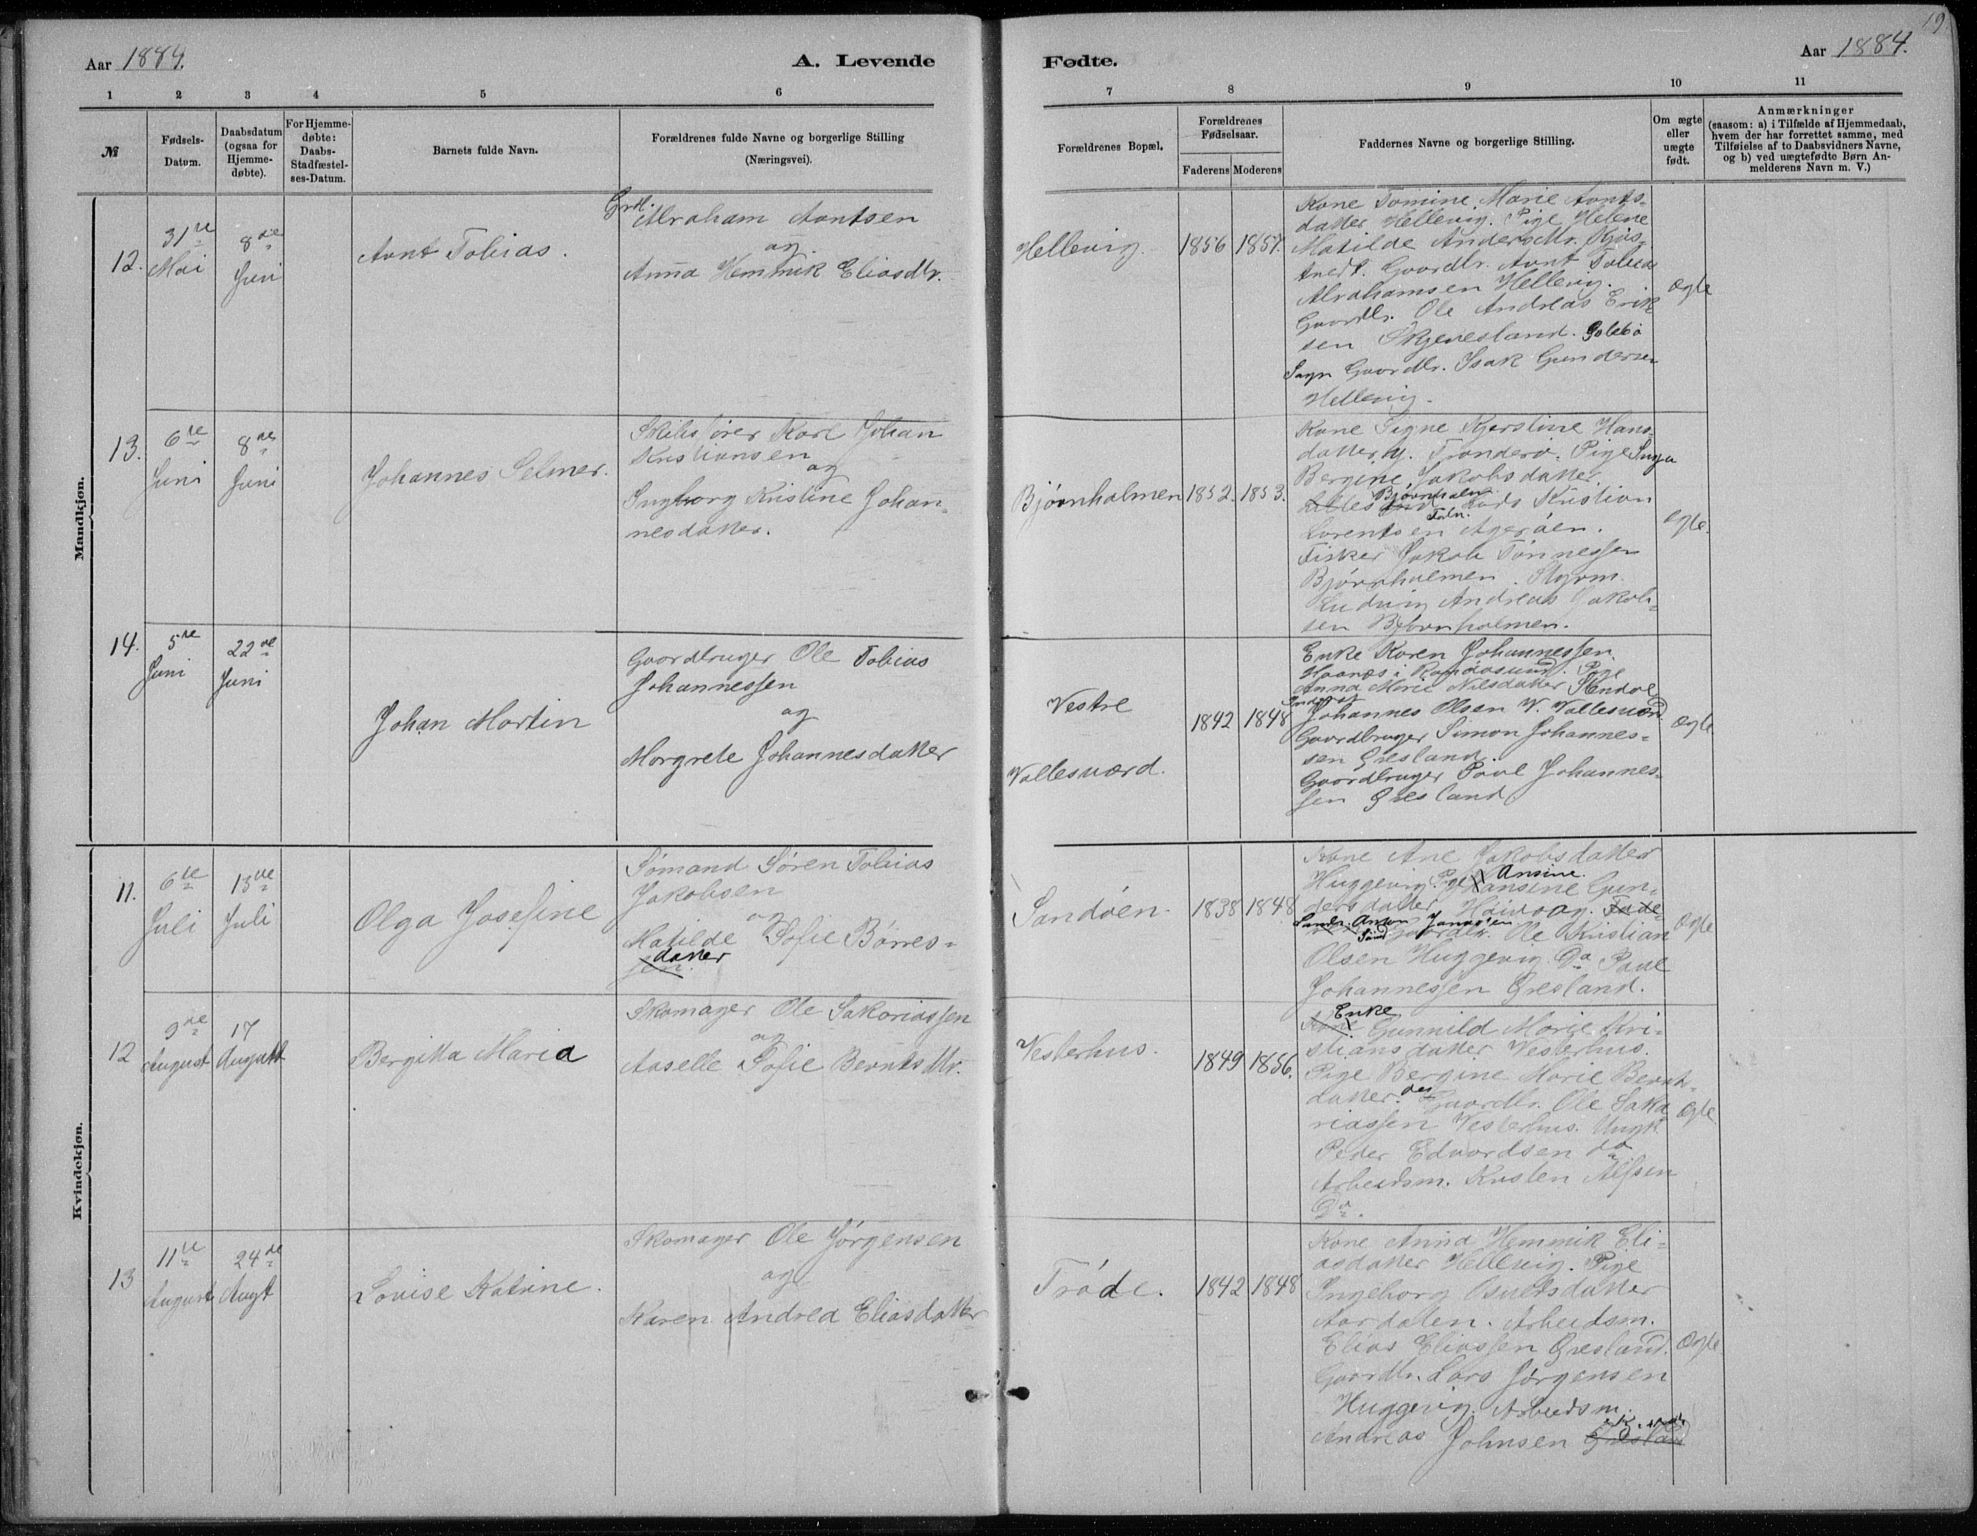 Aar 1884.
A. Levende
Fødte.
Aar 1884.
19.
1 2 3 4 5 6 7 8 9 10 11
№
Fødsels-
Datum.
Daabsdatum
(ogsaa for
Hjemme-
døbte).
For Hjemme-
døbte:
Daabs-
Stadfæstel-
ses-Datum.
Barnets fulde Navn.
Forældrenes fulde Navne og borgerlige Stilling
(Næringsvei).
Forældrenes Bopæl.
Forældrenes
Fødselsaar.
Faderens
Moderens
Faddernes Navne og borgerlige Stilling.
Om ægte
eller
uægte
født.
Anmærkninger
(saasom: a) i Tilfælde af Hjemmedaab,
hvem der har forrettet samme, med
Tilføielse af to Daabsvidners Navne,
og b) ved uægtefødte Børn An-
melderens Navn m. V.)
Mandkjøn.
12.
31te
Mai
8de
Juni
Avnt Tobias.
Grdl.
Abraham Avntsen
og
Anna Hemmik Eliasdtr.
Hellevig.
1856
1857.
Kone Tomine Marie Avnts-
datter Hellevig. Pige Helene
Matilde Andersdtr.
Gaardbr. Avnt Tobias
Abrahamsen Hellevig.
Gaardbr. Ole Andreas Erik
sen Skjevesland.
Gaardbr. Isak Gundersen
Hellevig.
Ægte
13.
6te
Juni
8de
Juni
Johannes Selmer.
Skibsfører Karl Johan
Kristiansen
og
Ingborg Kristine Johan-
nesdatter.
Bjørnholmen
1852.
1853.
Kone Signe Kjerstine Hans
datter Trønderø. Pige Inga
Bergine Jakobsdatter
Bjørnholm
Lods Kristian
Lorentsen Agerøen.
Fisker Jakob Tønnessen
Bjørnholmen. Styrm.
Ludvig Andreas Jakob-
sen Bjørnholmen.
Ægte.
14.
5te
Juni
22de
Juni
Johan Martin
Gaardbruger Ole Tobias
Johannessen
og
Margrete Johannesdatter
Vestre
Vallesværd.
1842
1848
Enke Karen Johannessen.
Haanæs i Randøsund. Pige
Anna Marie Nilsdatter
Johannes Olsen V. Vallesværd
Gaardbruger Simon Johannes-
sen Gresland.
Gaardbruger Povl Johannes-
sen Gresland
Ægte
Kvindekjøn.
11.
6te
Juli
13de
Juli
Olga Josefine
Sømand Søren Tobias
Jakobsen
og
Matilde Sofie Børres-
datter
sen.
Sandøen.
1838
1848
Kone Ane Jakobsdatter
Ansine.
Huggevig. Pige Hansine Gun-
dersdatter Høivaag.
Gaardbr. Ole Kristian
Olsen Huggevig. Do Povl
Johannessen Gresland.
Ægte
12
9de
August
17
August
Bergitta Maria
Skomager Ole Sakariassen
og
Aaselle Sofie Berntsdtr.
Vesterhus.
1849
1856.
Enke
Kone Gunnild Marie Kri-
stiansdatter Vesterhus.
Pige Bergine Marie Bernts-
datter. do Gaardbr. Ole Saka
riassen Vesterhus. Ungk
Peder Edvardsen do
Arbeidsm. Kristen Alfsen
Do.
Ægte
13
11te
August
24de
Augt
Lovise Katrine.
Skomager Ole Jørgensen
og
Karen Andrea Eliasdatter
Trøde.
1842
1848
Kone Anna Hemmik Eli-
asdatter Hellevig. Pige
Ingeborg Osuldsdatter
Aardalen. Arbeidsm.
Elias Eliassen Gresland.
Gaardbr. Lars Jørgensen
Huggevig. Arbeidsm.
Andreas Johnsen Gresland
Ægte